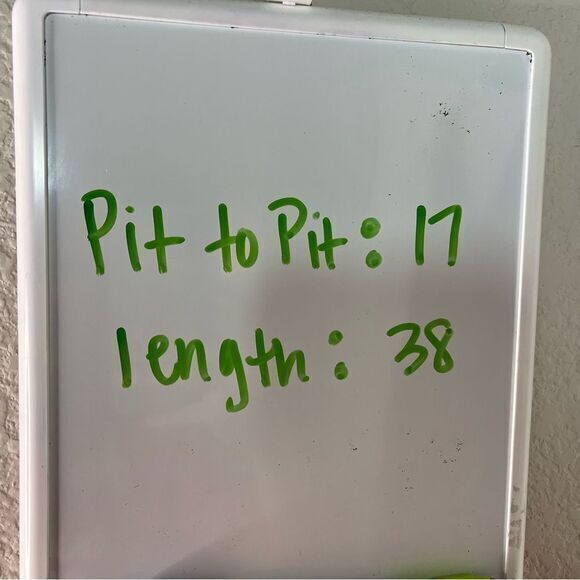 Pit to Pit: 17
length: 38